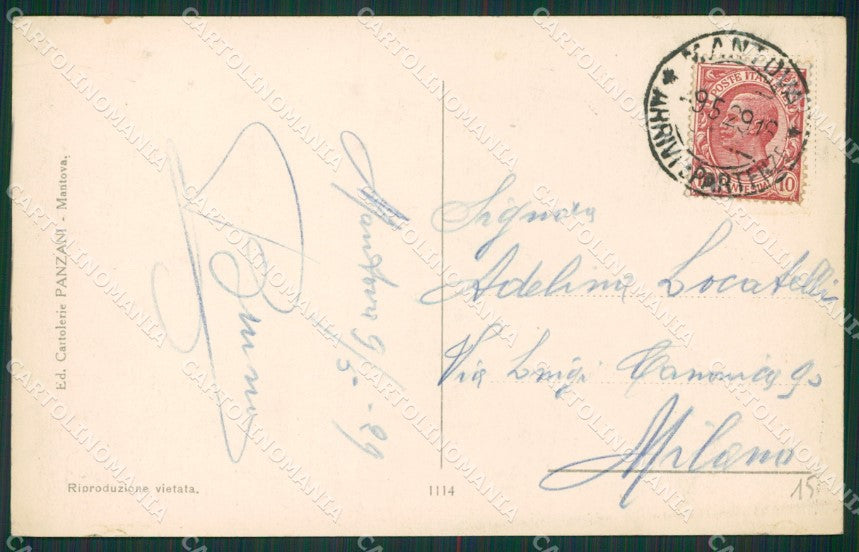 Ed. Cartolerie PANZANI - Mantova.
Mantova 9/5-29
Bruno
Riproduzione vietata.
1114
MANTOVA
ARRIVI PARTENZE
9.5.29.19
POSTE ITALIANE
10
Signora
Adelina Locatelli
Via Luigi Canonica
Milano
15
CARTOLINOMANIA